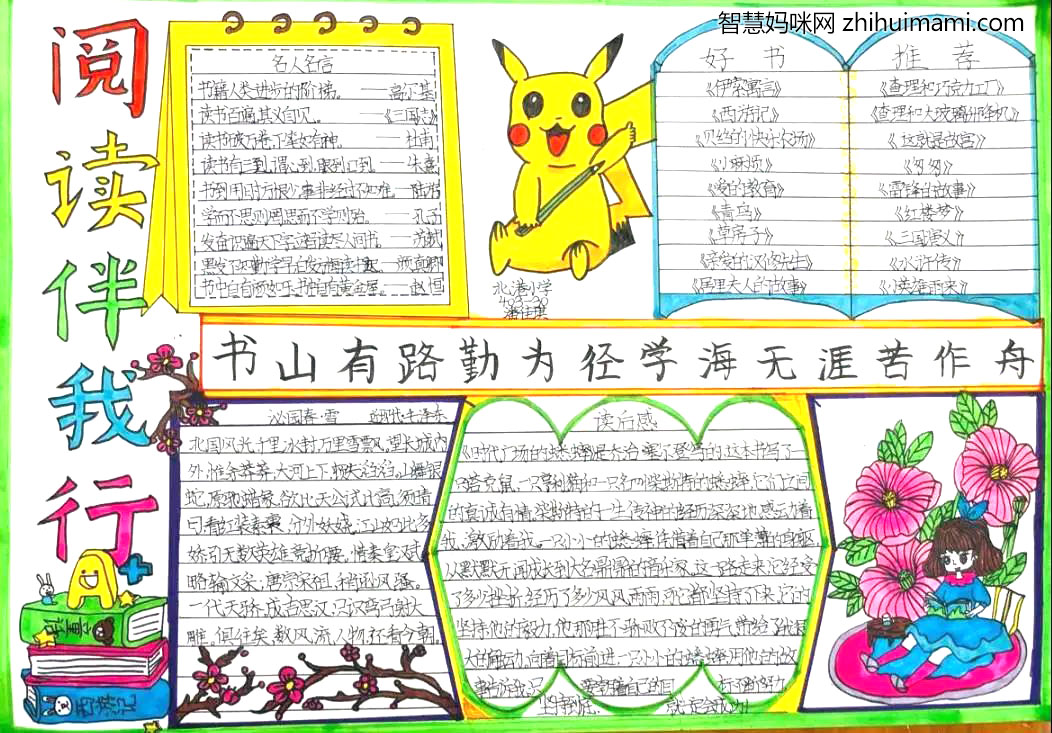 智慧妈咪网 zhihuimami.com
阅读伴我行
名人名言
书籍人类进步的阶梯。——高尔基
读书百遍,其义自见。——《三国志》
读书破万卷,下笔如有神。——杜甫
读书有三到,谓心到,眼到,口到。——朱熹
书到用时方恨少,事非经过不知难。——陆游
学而不思则罔,思而不学则殆。——孔子
发奋识遍天下字,立志读尽人间书。——苏轼
黑发不知勤学早,白首方悔读书迟。——颜真卿
书中自有颜如玉,书中自有黄金屋。——赵恒
北港小学
潘佳琪
好书 推荐
《伊索寓言》
《西游记》
《贝丝的快乐农场》
《小麻烦》
《爱的教育》
《青鸟》
《草房子》
《亲爱的汉修先生》
《居里夫人的故事》
《查理和巧克力工厂》
《查理和大玻璃升降机》
《这就是故宫》
《爷爷》
《雷锋的故事》
《红楼梦》
《三国演义》
《水浒传》
《小英雄雨来》
书山有路勤为径学海无涯苦作舟
沁园春·雪 近现代:毛泽东
北国风光,千里冰封,万里雪飘。望长城内
外,惟余莽莽,大河上下,顿失滔滔。山舞银
蛇,原驰蜡象,欲比天公试比高。须晴
日,看红装素裹,分外妖娆。江山如此多
娇,引无数英雄竞折腰。惜秦皇汉武,
略输文采;唐宗宋祖,稍逊风骚。
一代天骄,成吉思汗,只识弯弓射大
雕。俱往矣,数风流人物,还看今朝。
读后感
《时代广场的蟋蟀》是乔治·塞尔登写的,这本书写了一
只塔克鼠,一只亨利猫和一只名叫柴斯特的蟋蟀,它们之间
的真诚友情。柴斯特的一生传神的经历深深地感动着
我,激励着我。一只小小的蟋蟀凭借着自己那单薄的身躯
从默默无闻成长到大名鼎鼎的音乐家,这一路走来,它经受
了多少挫折,经历了多少风风雨雨,可它都坚持了下来,它的
坚持,他的毅力,他那胜不骄败不馁的勇气,带给了我很
大的触动,向前目标前进,一只小小的蟋蟀用他的故
事告诉我们 要朝着自己的目 标不断努力
坚持到底 就一定会成功!
A+
西游记